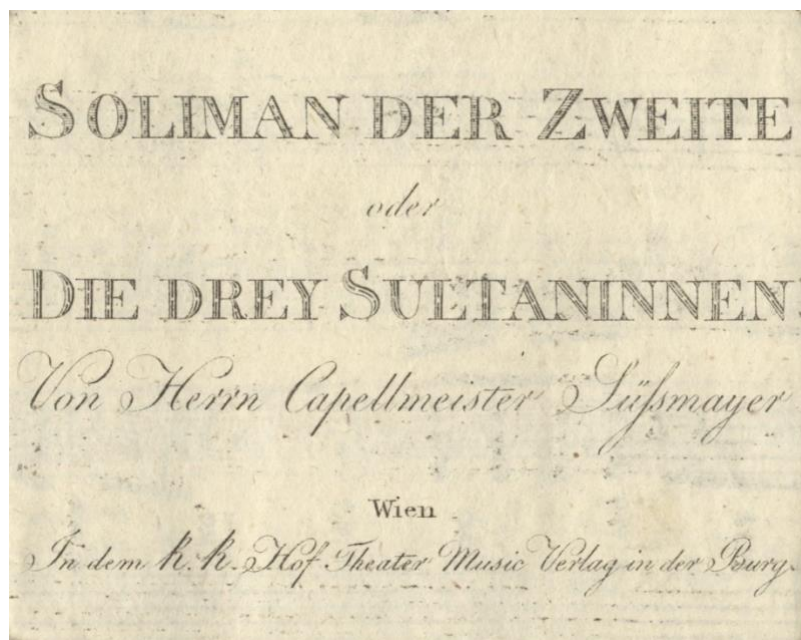 SOLIMAN DER ZWEITE
oder
DIE DREY SULTANINNEN
Von Herrn Capellmeister Süſsmayer
Wien
In dem k. k. Hof Theater Music Verlag in der Burg.